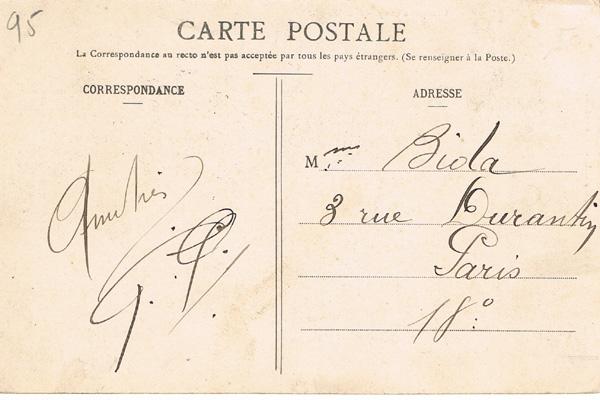 95
CARTE POSTALE
La Correspondance au recto n'est pas acceptée par tous les pays étrangers. (Se renseigner à la Poste.)
CORRESPONDANCE
Amitiés
ADRESSE
Mme Biola
3 rue Durantin
Paris
18º